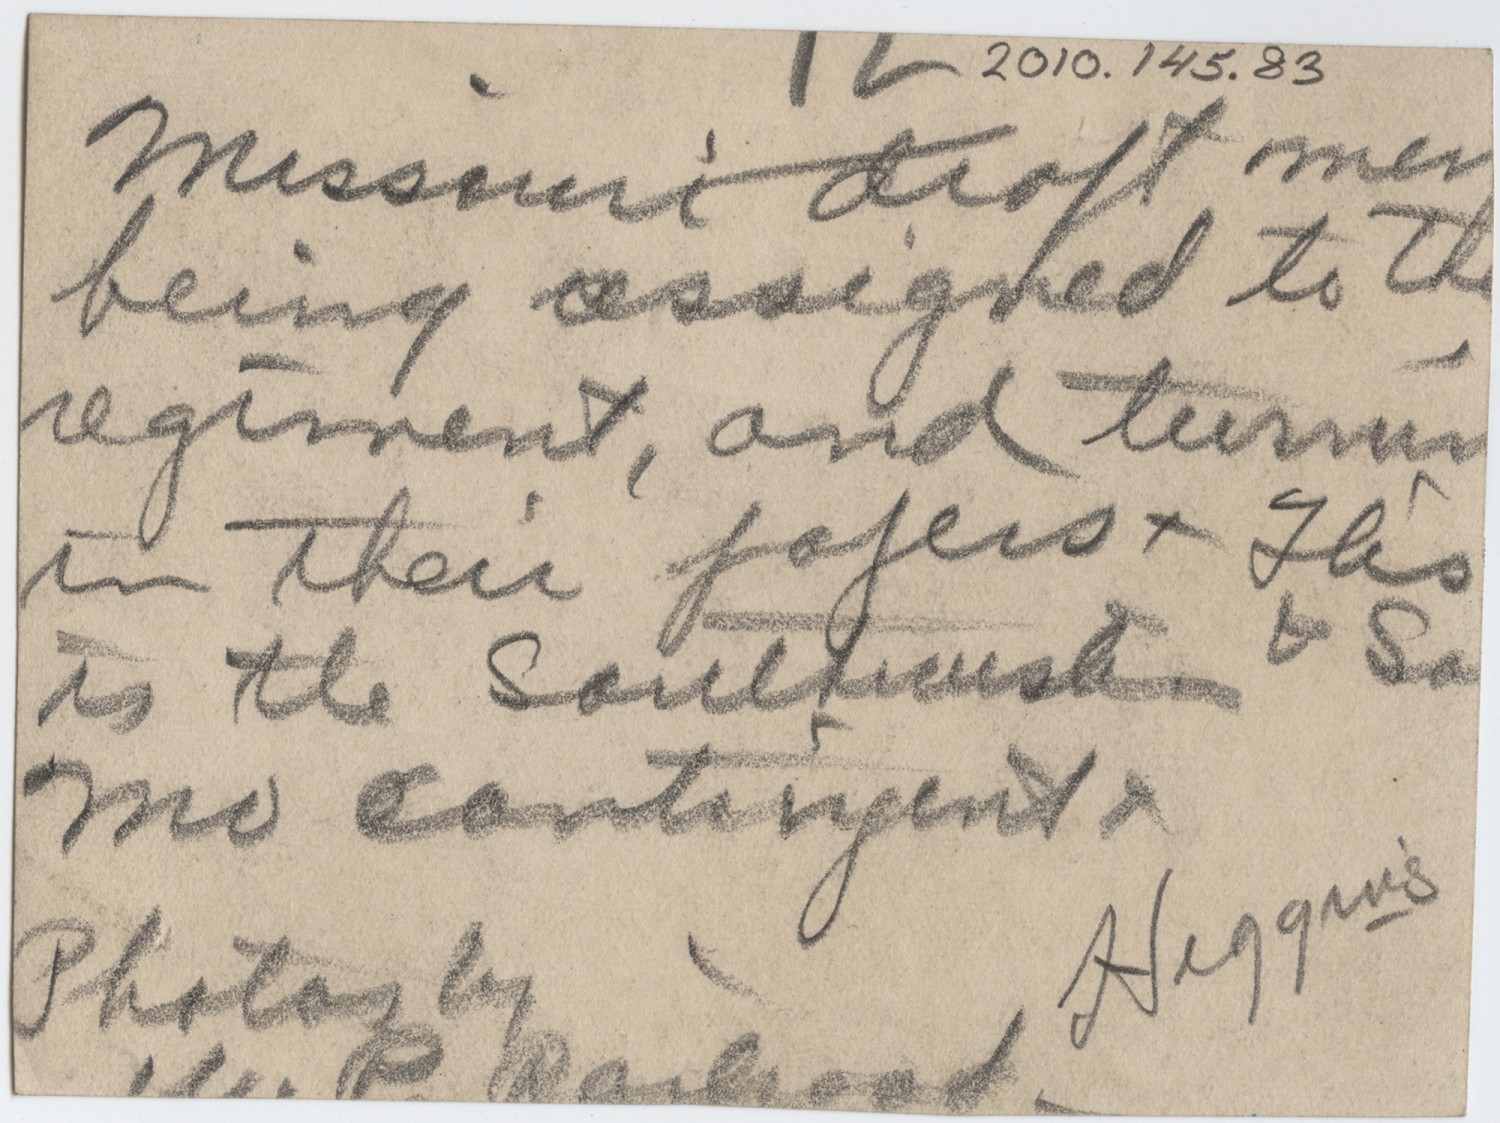 12 2010.145.83
Missouri draft men
being assigned to the
regiment, and turnin
in their papers x This
is the Southwest & So
Mo contingent x
Higgins
Photos by
M. P. Railroad